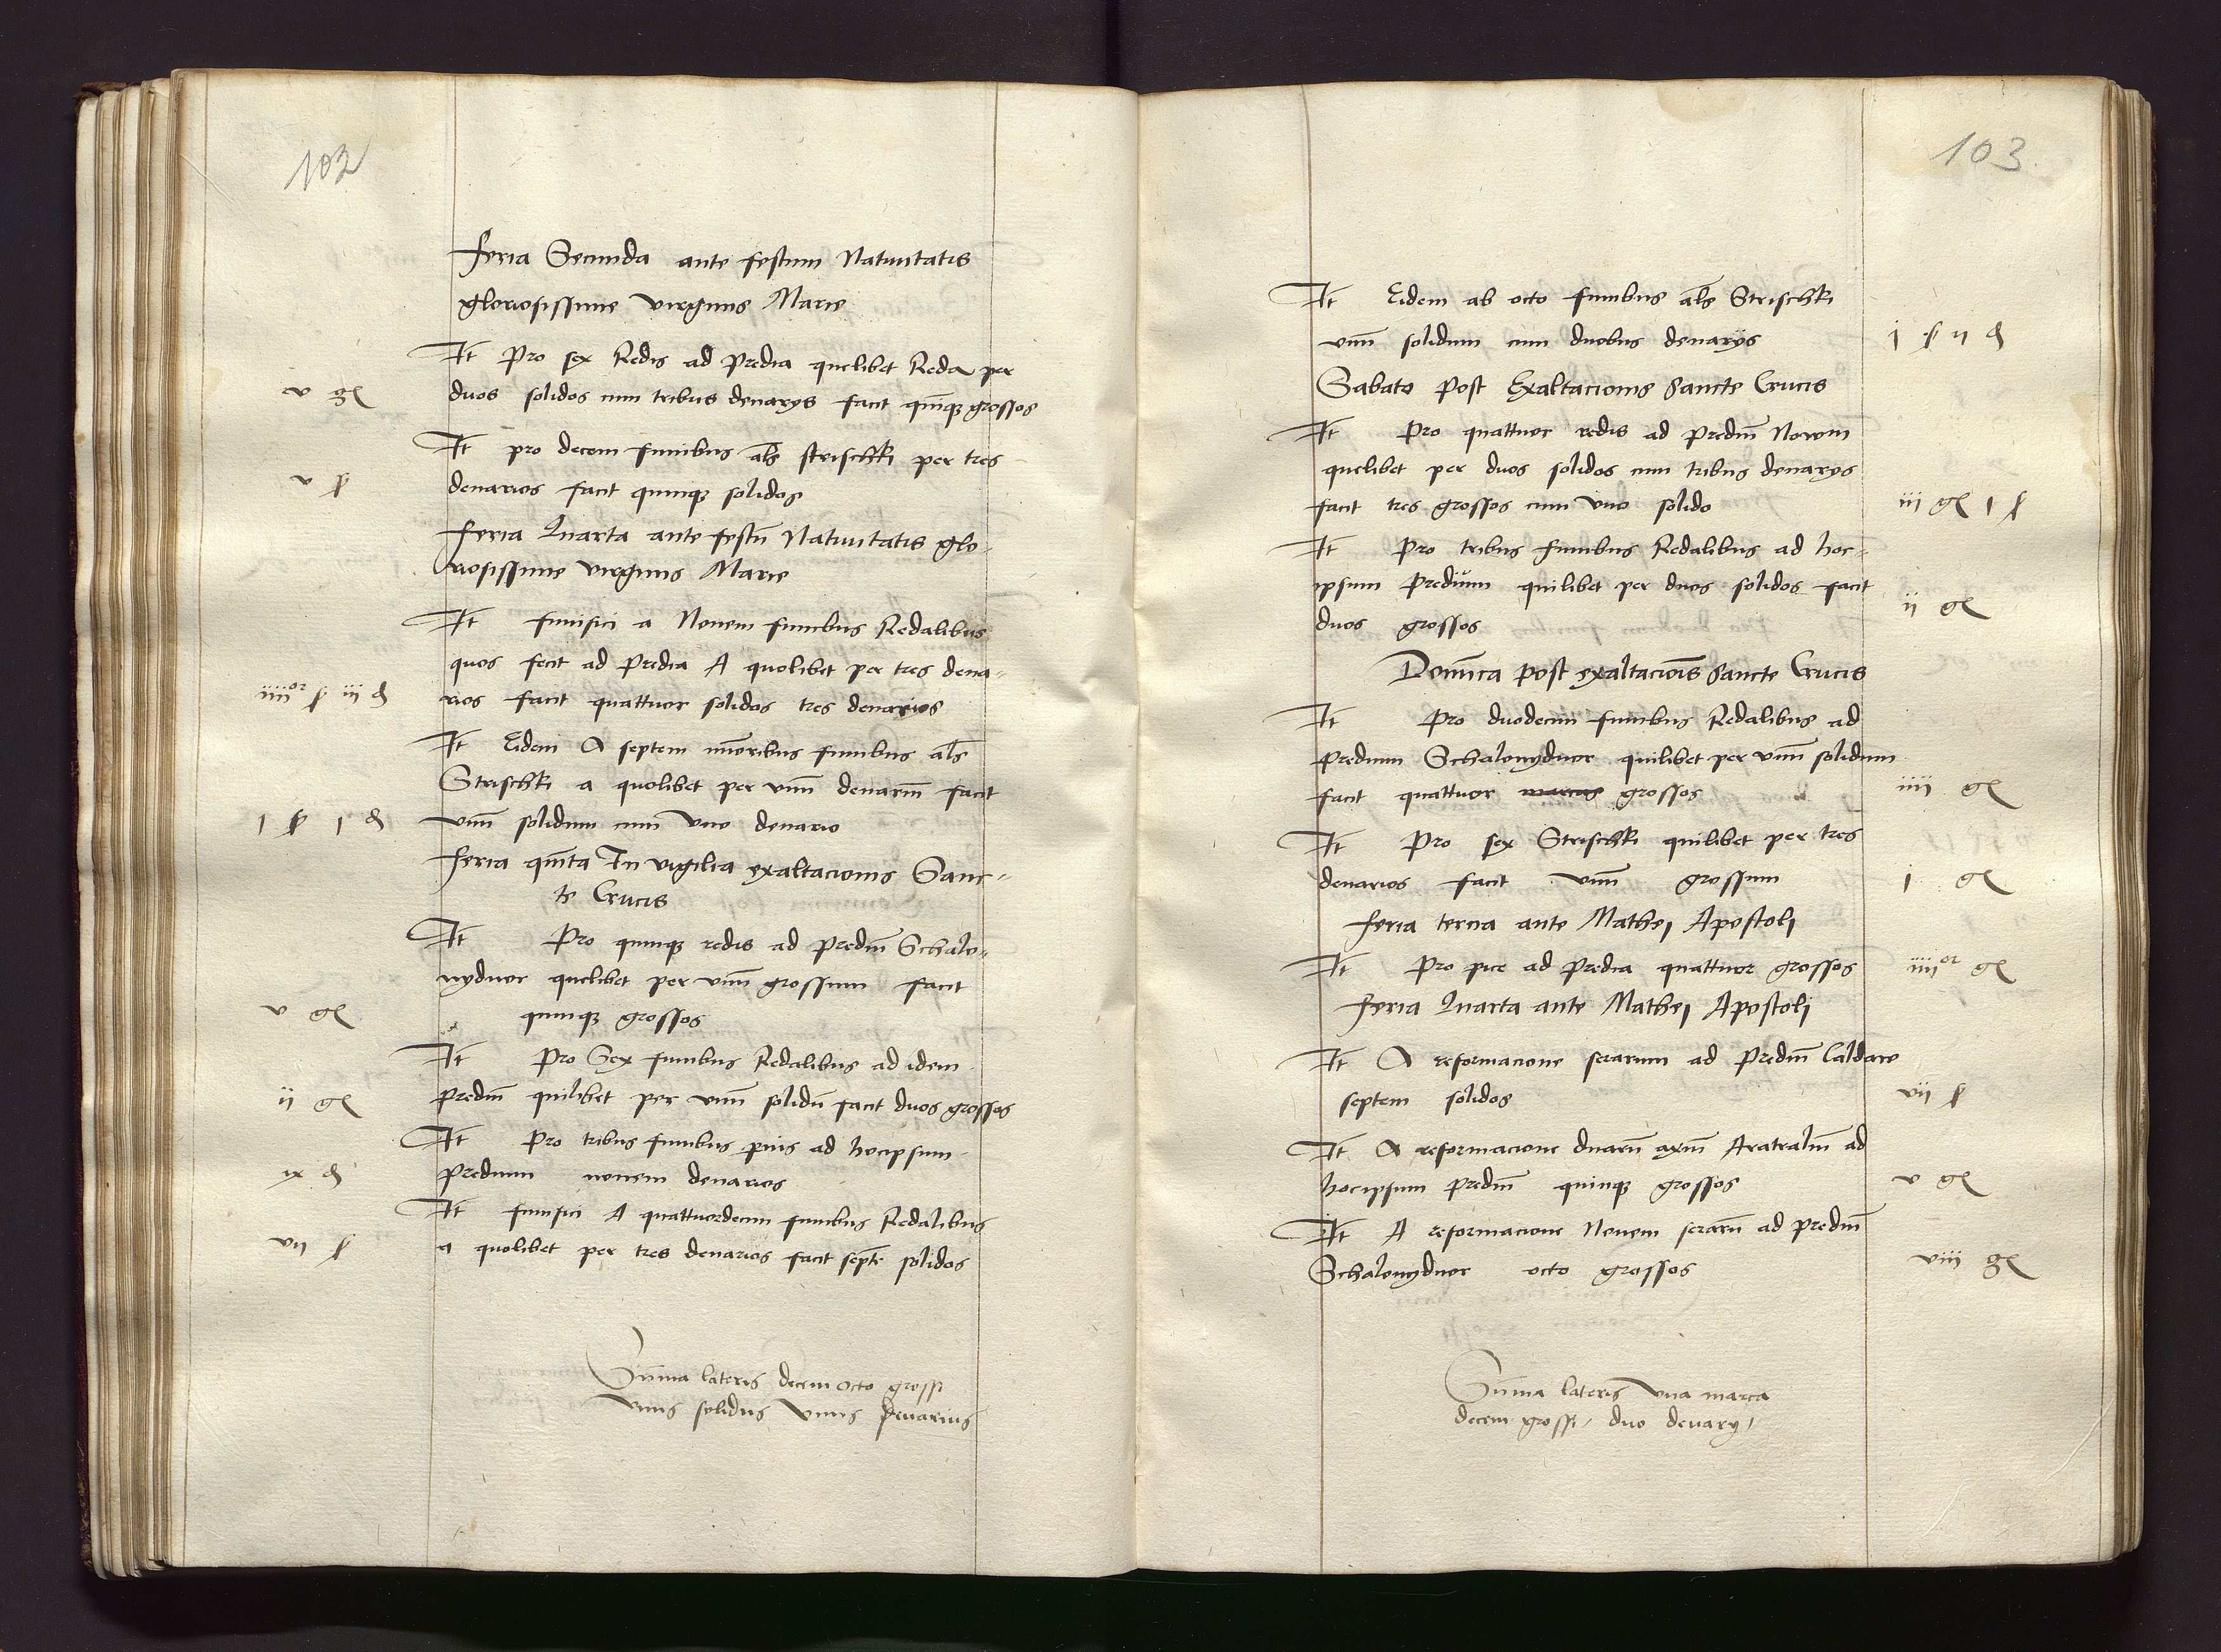 102
Feria Secunda ante festum Natiuitatis
gloriosissime virginis Marie
It Pro sex Redis ad Predia quelibet Reda per
v gl duos solidos cum tribus denarys facit quinque grossos
It pro decem funibus als strischki per tres
v s denarios facit quinque solidos
Feria Quarta ante festu Natiuitatis glo-
riosissime virginis Marie
It funifici a Nouem funibus Redalibus
quos fecit ad Predia A quolibet per tres dena-
iiiior s iii d rios facit quattuor solidos tres denarios
It Eidem A septem funibus als
Strischki a quolibet per vnu denariu facit
i s i d vnu solidum cum vno denario
Feria quinta In vigilia exaltacionis Sanc-
te Crucis
It Pro quinque redis ad prediu Schalo-
nyduor quelibet per vnu grossum facit
v gl quinque grossos
It Pro Sex funibus Redalibus ad idem
ii gl prediu quilibet per vnu solidu facit duos grossos
It Pro tribus funibus ad hocipsum
ix d predium nouem denarios
It funifici A quattuordecim funibus Redalibus
vii s a quolibet per tres denarios facit septe solidos
Suma lateris decem octo grossi
vnus solidus vnus denarius
103
It Eidem ab octo funibus als Strischki
vnu solidum cum duobus denarys i s ii d
Sabato Post Exaltacionis Sancte Crucis
It Pro quattuor redis ad prediu Nowum
quelibet per duos solidos cum tribus denarys
facit tres grossos cum vno solido iii gl i s
It Pro tribus funibus Redalibus ad hoc-
ipsum Predium quilibet per duos solidos facit
duos grossos ii gl
Dominica Post exaltacionis Sancte Crucis
It Pro duodecim funibus Redalibus ad
Predium Schalonyduor quilibet per vnu solidum
facit quattuor marcas grossos iiii gl
It Pro sex Strischki quilibet per tres
denarios facit vnu grossum i gl
Feria tercia ante Mathej Apostolj
It Pro pice ad Predia quattuor grossos iiiior gl
Feria Quarta ante Mathej Apostolj
It A reformacione serarum ad Prediu Caldare
septem solidos vii s
It A reformacione duaru axiu Aratraliu ad
hocipsum prediu quinque grossos v gl
It A reformacione Nouem seraru ad prediu
Schalonyduor octo grossos viii gl
Suma lateris vna marca
decem grossi / duo denary /